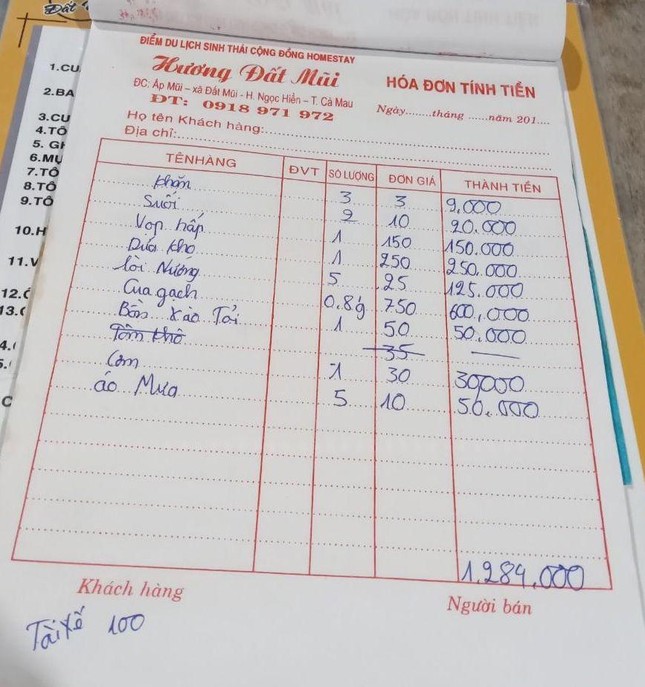 Đất
1.CU
2.BA
3.CU
4.TÔ
5. GH
6.MỰ
7.TÔ
8.TÔ
9.TÔ
10.H
11.V
12.
13.
4.
5.
C
ĐIỂM DU LỊCH SINH THÁI CỘNG ĐỒNG HOMESTAY
Hương Đất Mũi
ĐC: Ấp Mũi - xã Đất Mũi - H. Ngọc Hiển – T. Cà Mau
ĐT: 0918 971 972
HÓA ĐƠN TÍNH TIỀN
Ngày........tháng ......năm 201....
Họ tên Khách hàng:
Địa chỉ:
TÊN HÀNG ĐVT SỐ LƯỢNG ĐƠN GIÁ THÀNH TIỀN
Khăn 3 3 9,000
Suối 2 10 20.000
Vọp hấp 1 150 150.000
Dứa kho 1 250 250.000
Nướng 5 25 125.000
Cua gạch 0.8 750 600,000
Bồn xào Tỏi 1 50 50.000
Tôm khô 35 —
Cơm 1 30 30,000
áo Mưa 5 10 50.000
1.284.000
Khách hàng Người bán
Tài xế 100